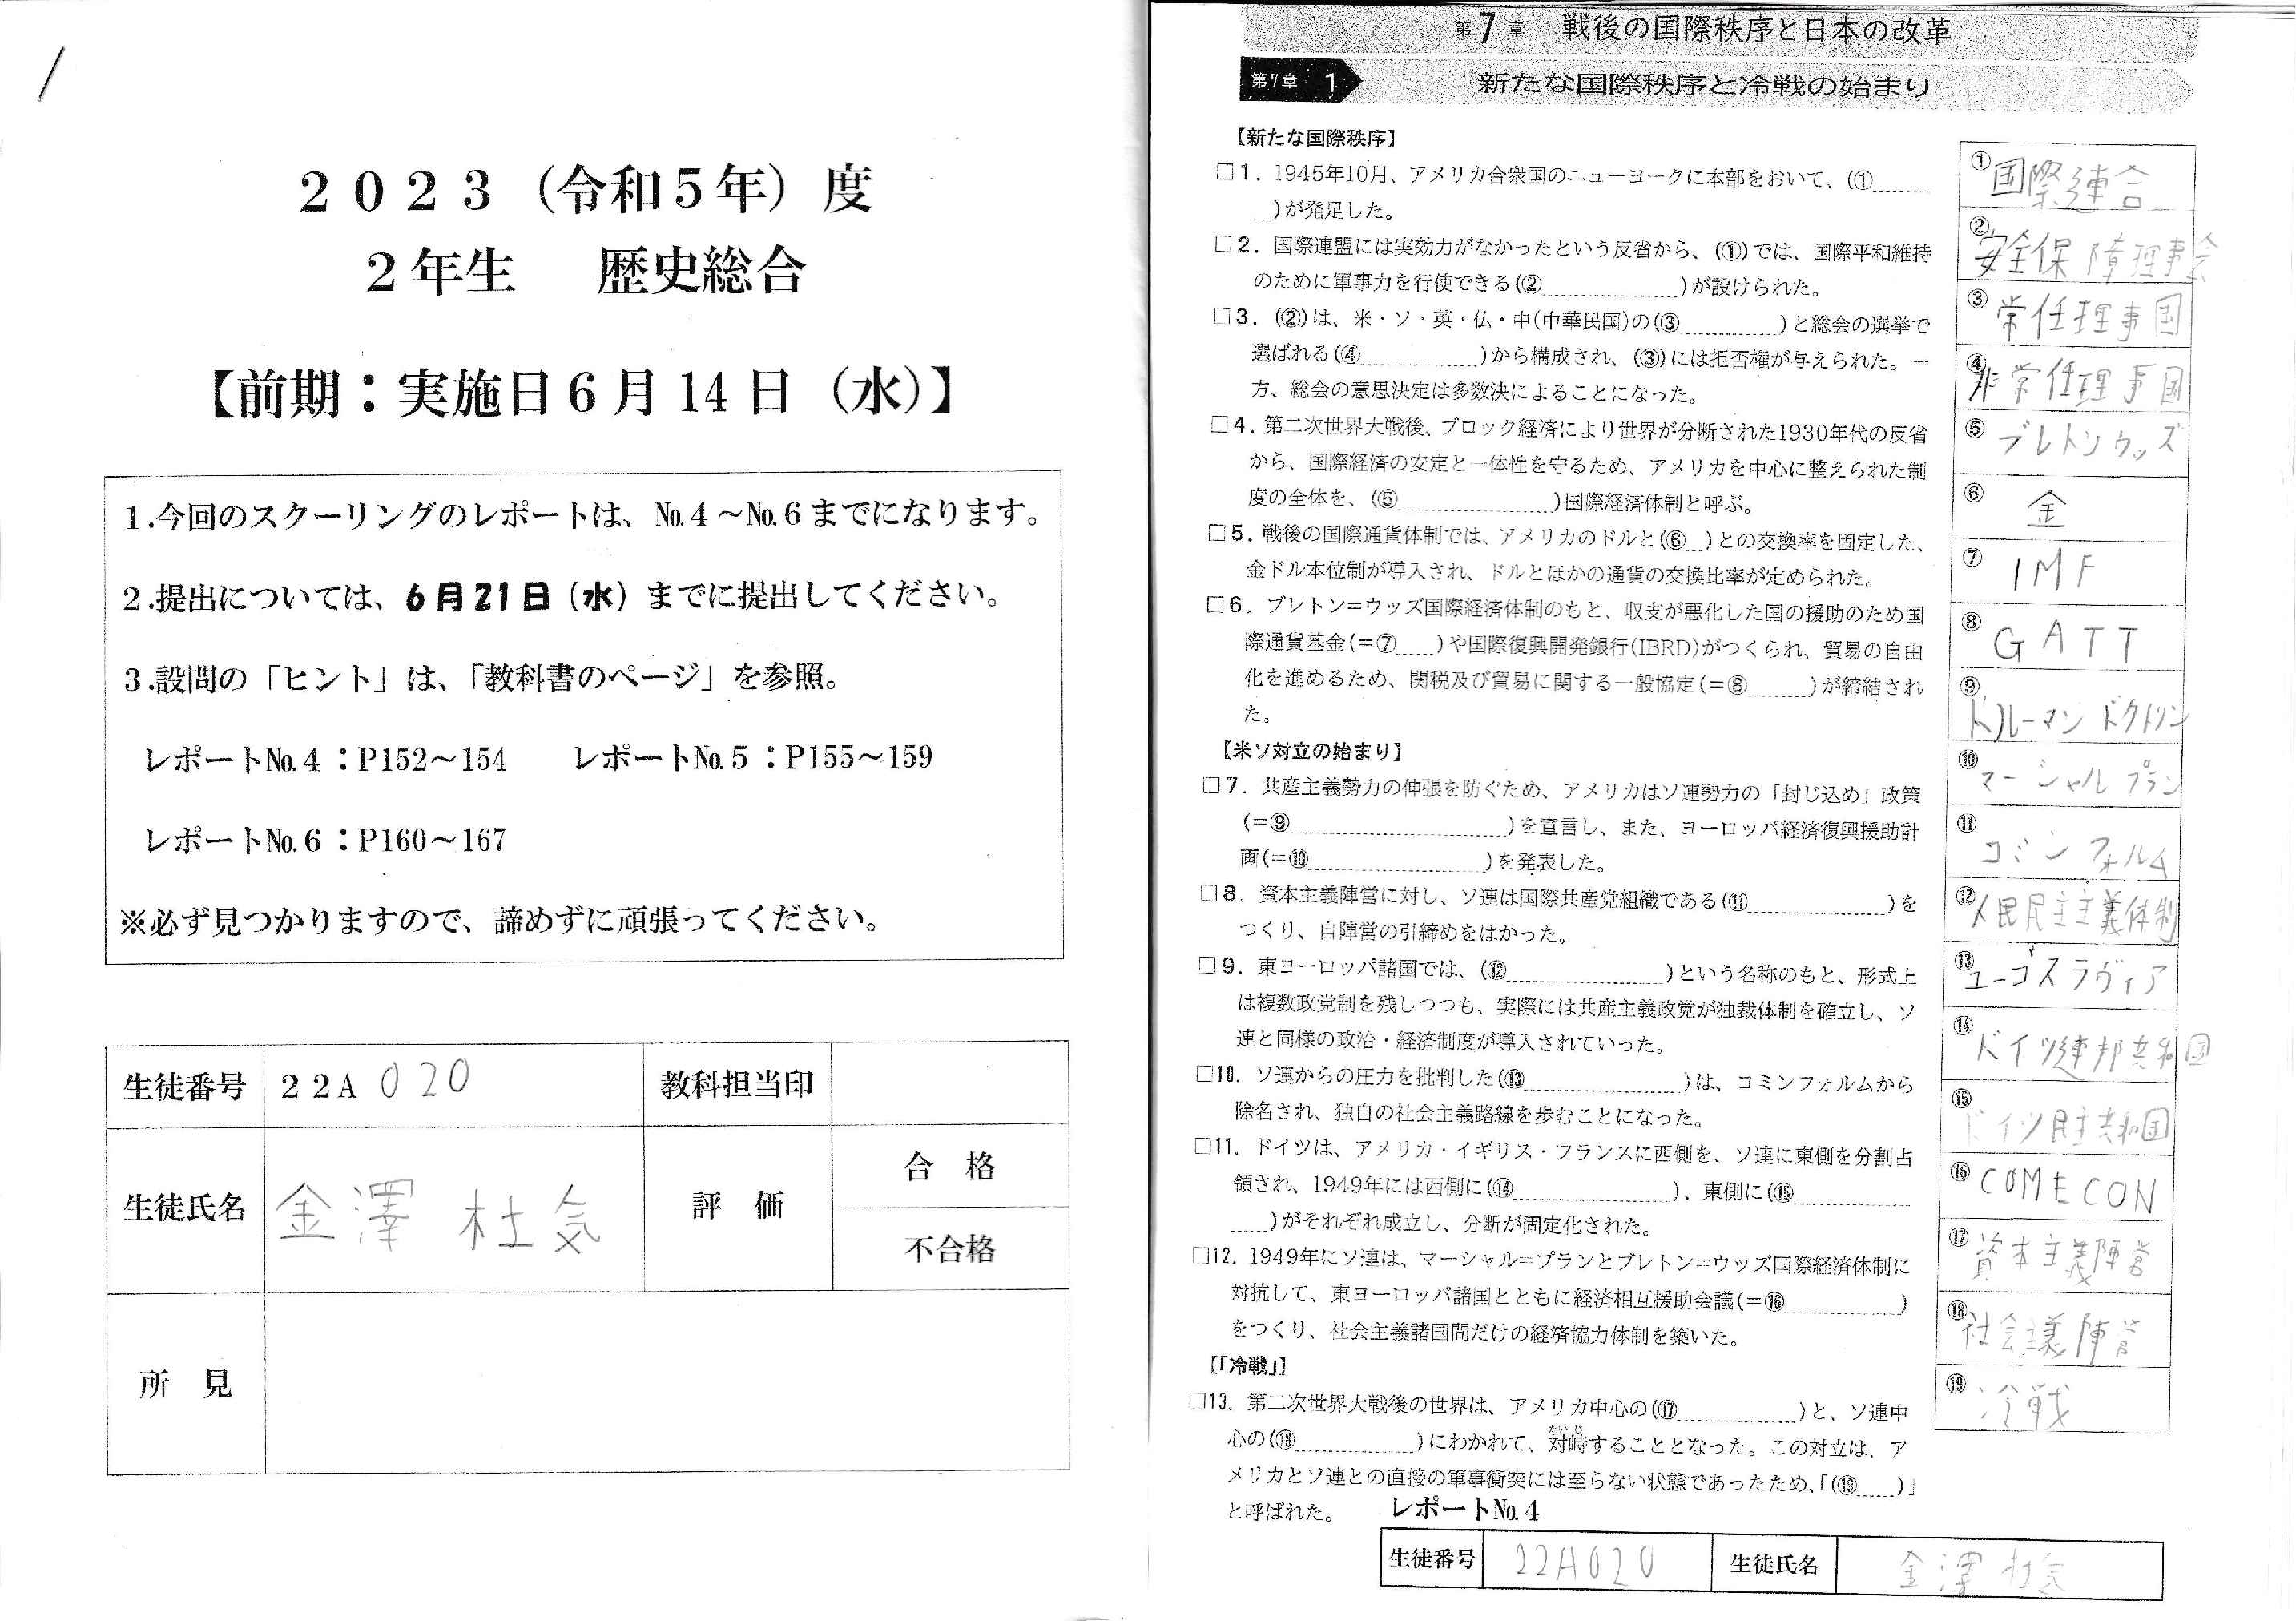 2023（令和5年）度
2年生　歴史総合
【前期：実施日6月14日（水）】
1.今回のスクーリングのレポートは、№4～№6までになります。
2.提出については、6月21日（水）までに提出してください。
3.設問の「ヒント」は、「教科書のページ」を参照。
レポート№4：P152～154　レポート№5：P155～159
レポート№6：P160～167
※必ず見つかりますので、諦めずに頑張ってください。
生徒番号　22A 020　教科担当印
生徒氏名　金澤 杜気　評　価　合　格
不合格
所　見
第7章　戦後の国際秩序と日本の改革
第7章　1　新たな国際秩序と冷戦の始まり
【新たな国際秩序】
□1．1945年10月、アメリカ合衆国のニューヨークに本部をおいて、(①
)が発足した。
□2．国際連盟には実効力がなかったという反省から、(①)では、国際平和維持
のために軍事力を行使できる(②　)が設けられた。
□3．(②)は、米・ソ・英・仏・中(中華民国)の(③　)と総会の選挙で
選ばれる(④　)から構成され、(③)には拒否権が与えられた。一
方、総会の意思決定は多数決によることになった。
□4．第二次世界大戦後、ブロック経済により世界が分断された1930年代の反省
から、国際経済の安定と一体性を守るため、アメリカを中心に整えられた制
度の全体を、(⑤　)国際経済体制と呼ぶ。
□5．戦後の国際通貨体制では、アメリカのドルと(⑥　)との交換率を固定した、
金ドル本位制が導入され、ドルとほかの通貨の交換比率が定められた。
□6．ブレトン＝ウッズ国際経済体制のもと、収支が悪化した国の援助のため国
際通貨基金(＝⑦　)や国際復興開発銀行(IBRD)がつくられ、貿易の自由
化を進めるため、関税及び貿易に関する一般協定(＝⑧　)が締結され
た。
【米ソ対立の始まり】
□7．共産主義勢力の伸張を防ぐため、アメリカはソ連勢力の「封じ込め」政策
(＝⑨　)を宣言し、また、ヨーロッパ経済復興援助計
画(＝⑩　)を発表した。
□8．資本主義陣営に対し、ソ連は国際共産党組織である(⑪　)を
つくり、自陣営の引締めをはかった。
□9．東ヨーロッパ諸国では、(⑫　)という名称のもと、形式上
は複数政党制を残しつつも、実際には共産主義政党が独裁体制を確立し、ソ
連と同様の政治・経済制度が導入されていった。
□10．ソ連からの圧力を批判した(⑬　)は、コミンフォルムから
除名され、独自の社会主義路線を歩むことになった。
□11．ドイツは、アメリカ・イギリス・フランスに西側を、ソ連に東側を分割占
領され、1949年には西側に(⑭　)、東側に(⑮
)がそれぞれ成立し、分断が固定化された。
□12．1949年にソ連は、マーシャル＝プランとブレトン＝ウッズ国際経済体制に
対抗して、東ヨーロッパ諸国とともに経済相互援助会議(＝⑯　)
をつくり、社会主義諸国間だけの経済協力体制を築いた。
【「冷戦」】
□13．第二次世界大戦後の世界は、アメリカ中心の(⑰　)と、ソ連中
心の(⑱　)にわかれて、対峙することとなった。この対立は、ア
メリカとソ連との直接の軍事衝突には至らない状態であったため、「(⑲　)」
と呼ばれた。
① 国際連合
② 安全保障理事会
③ 常任理事国
④ 非常任理事国
⑤ ブレトンウッズ
⑥ 金
⑦ IMF
⑧ GATT
⑨ トルーマンドクトリン
⑩ マーシャルプラン
⑪ コミンフォルム
⑫ 人民民主主義体制
⑬ ユーゴスラヴィア
⑭ ドイツ連邦共和国
⑮ ドイツ民主共和国
⑯ COMECON
⑰ 資本主義陣営
⑱ 社会主義陣営
⑲ 冷戦
レポート№4
生徒番号　22A020　生徒氏名　金澤 杜気